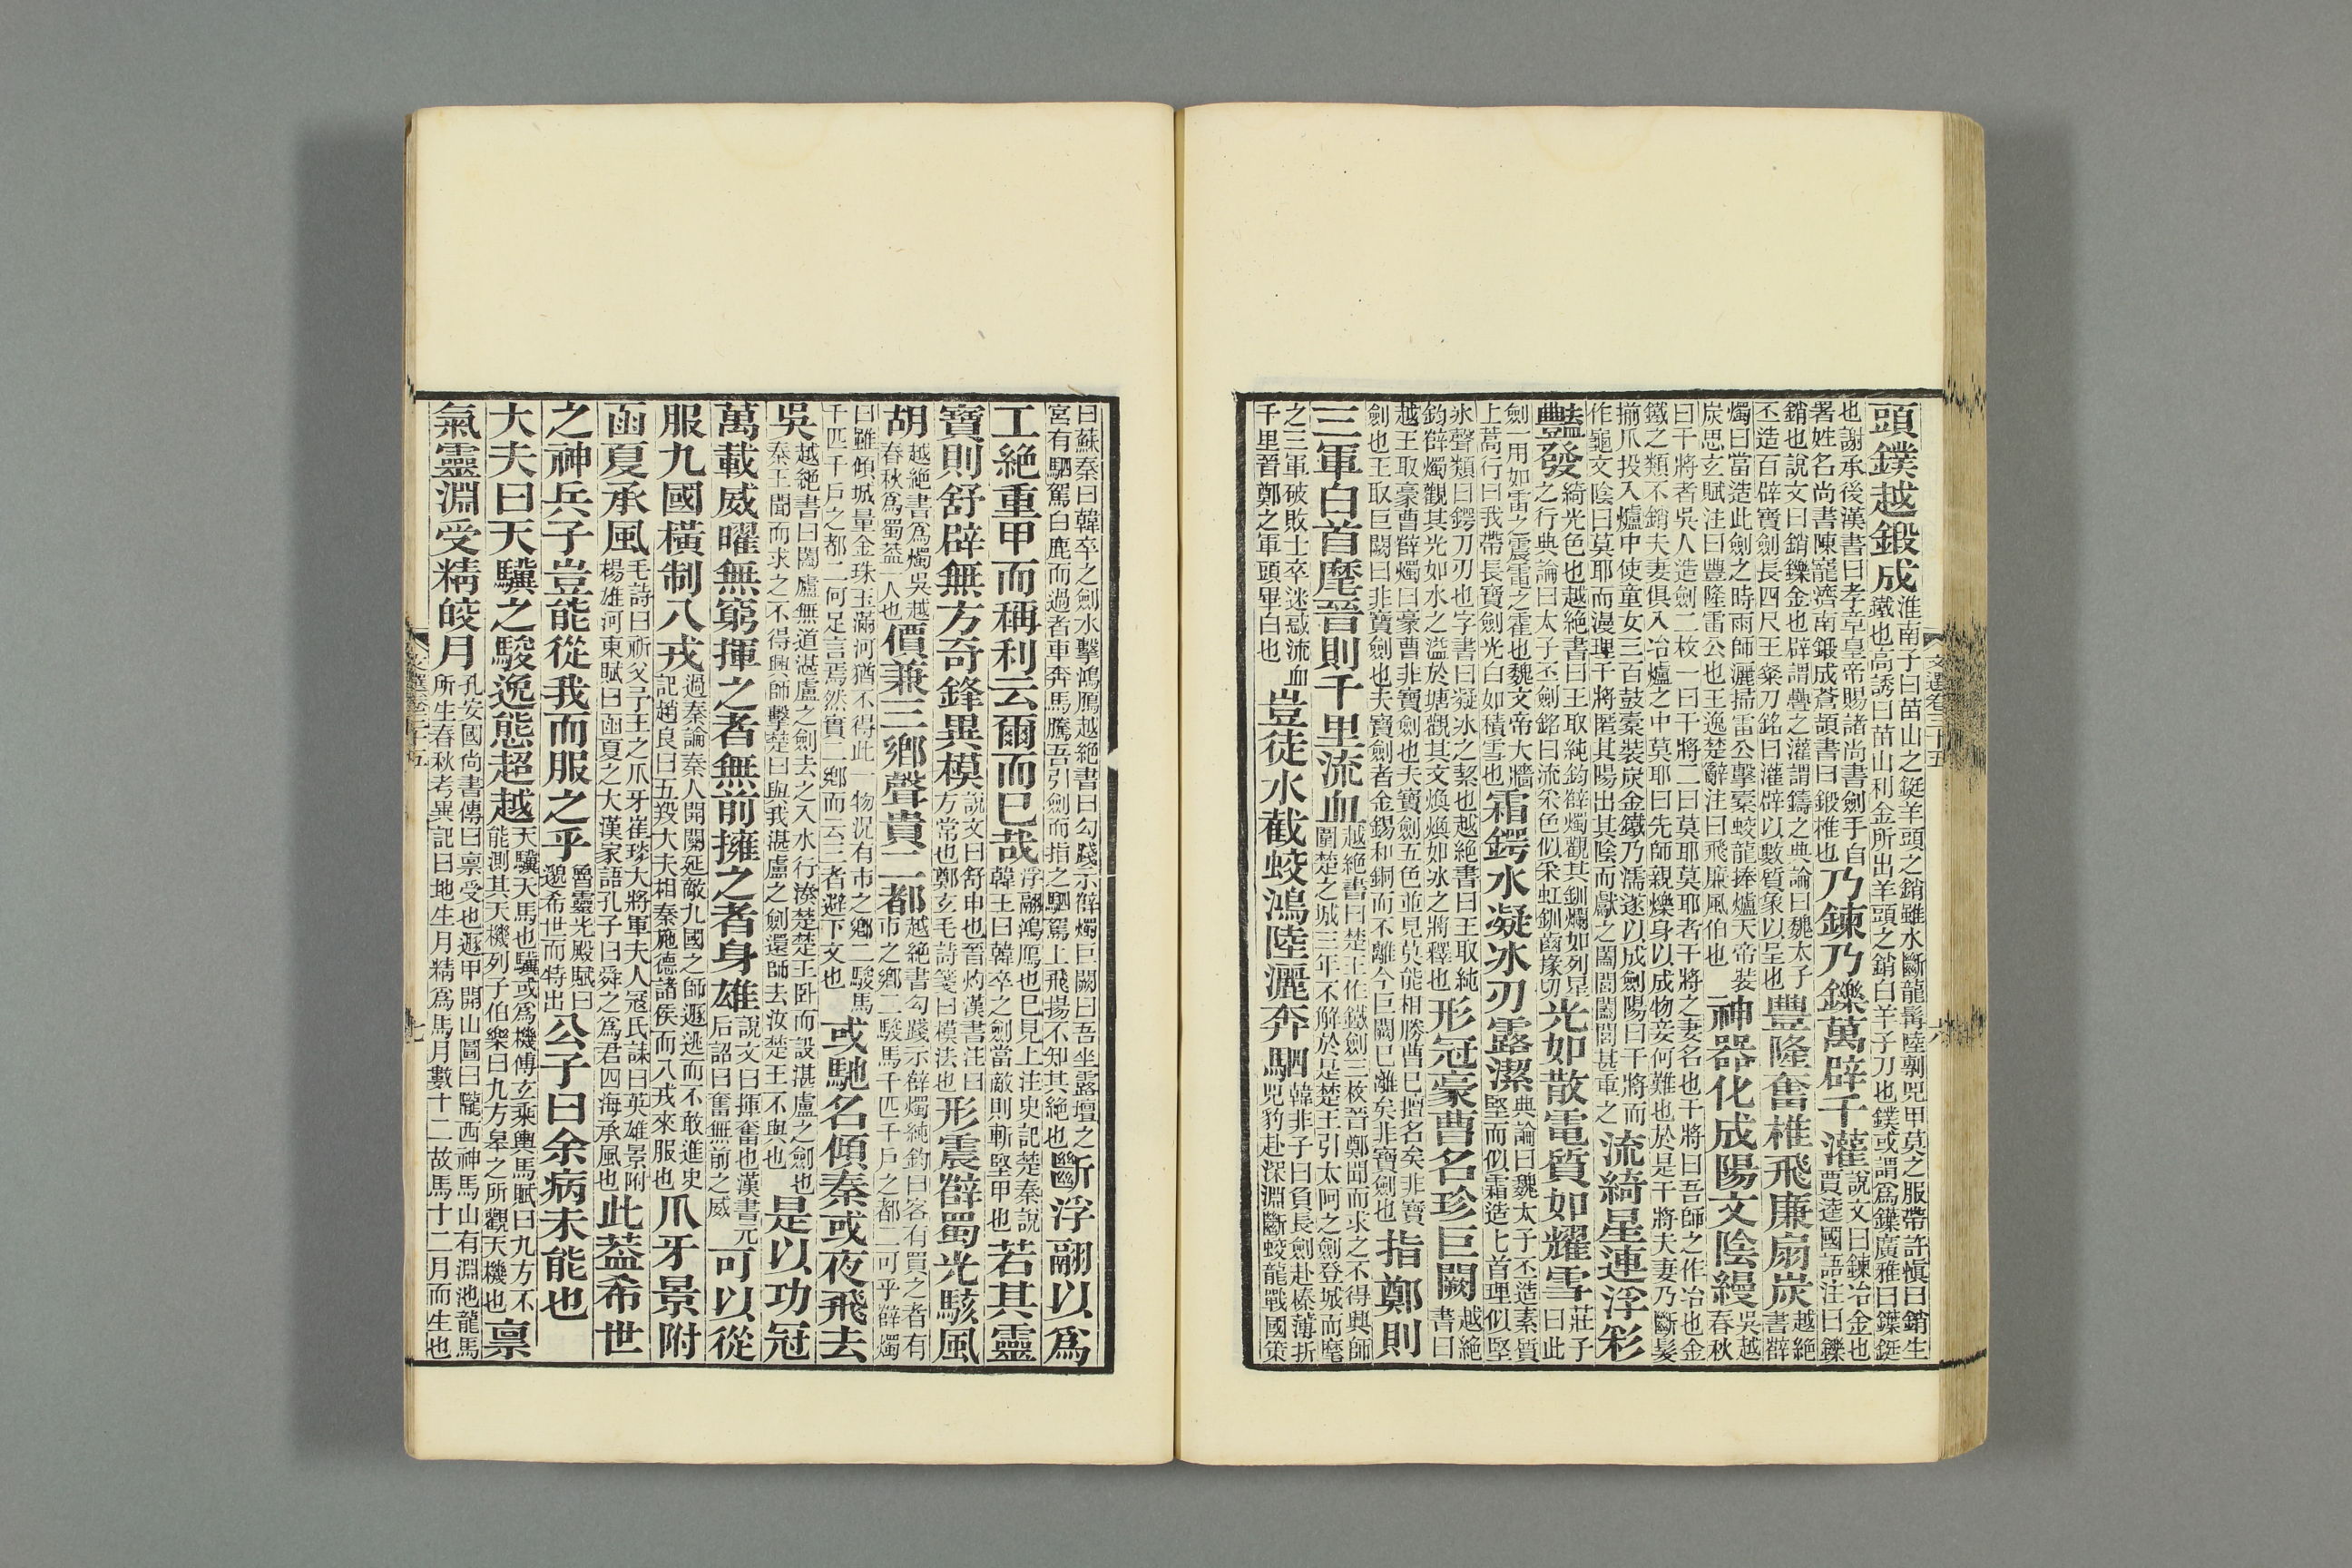 頭鏷越鍛成淮南子曰苗山之鋌羊頭之銷雖水斷龍髯陸剸兕甲莫之服帶許慎曰銷生
鐵也高誘曰苗山利金所出羊頭之銷白羊子刀也鏷或謂爲鏁廣雅曰鏁鋌
也謝承後漢書曰孝章皇帝賜諸尚書劍手自
署姓名尚書陳寵濟南鍛成蒼頡書曰鍛椎也
乃鍊乃鑠萬辟千灌說文曰鍊冶金也
賈逵國語注曰鑠
銷也說文曰銷鑠金也辟謂疊之灌謂鑄之典論曰魏太子
丕造百辟寶劍長四尺王粲刀銘曰灌辟以數質象以呈也
豐隆奮椎飛廉扇炭越絕
書薛
燭曰當造此劍之時雨師灑掃雷公擊橐蛟龍捧爐天帝裝
炭思玄賦注曰豐隆雷公也王逸楚辭注曰飛廉風伯也
神器化成陽文陰縵吳越
春秋
曰干將者吳人造劍二枚一曰干將二曰莫耶莫耶者干將之妻名也干將曰吾師之作冶也金
鐵之類不銷夫妻俱入冶爐之中莫耶曰先師親爍身以成物妾何難也於是干將夫妻乃斷髮
揃爪投入爐中使童女三百鼓橐裝炭金鐵乃濡遂以成劍陽曰干將而
作龜文陰曰莫耶而漫理干將匿其陽出其陰而獻之闔閭闔閭甚重之
流綺星連浮彩
豔發綺光色也越絕書曰王取純鈞薛燭觀其釽爛如列星
之行典論曰太子丕劍銘曰流采色似采虹釽齒掾切
光如散電質如耀雪莊子
曰此
劍一用如雷之震電之霍也魏文帝大牆
上蒿行曰我帶長寶劍光白如積雪也
霜鍔水凝冰刃露潔典論曰魏太子丕造素質
堅而似霜造匕首理似堅
冰聲類曰鍔刀刃也字書曰凝冰之絜也越絕書曰王取純
鈞薛燭觀其光如水之溢於塘觀其文煥煥如冰之將釋也
形冠豪曹名珍巨闕越絕
書曰
越王取豪曹薛燭曰豪曹非寶劍也夫寶劍五色並見莫能相勝曹已擅名矣非寶
劍也王取巨闕曰非寶劍也夫寶劍者金錫和銅而不離今巨闕已離矣非寶劍也
指鄭則
三軍白首麾晉則千里流血越絕書曰楚王作鐵劍三枚晉鄭聞而求之不得興師
圍楚之城三年不解於是楚王引太阿之劍登城而麾
之三軍破敗士卒迷惑流血
千里晉鄭之軍頭畢白也
豈徒水截蛟鴻陸灑奔駟韓非子曰負長劍赴榛薄折
兕豹赴深淵斷蛟龍戰國策
文選卷三十五
六
曰蘇秦曰韓卒之劍水擊鴻鴈越絕書曰勾踐示薛燭巨闕曰吾坐露壇之
宮有駟駕白鹿而過者車奔馬騰吾引劍而指之駟駕上飛揚不知其絕也
斷浮翮以爲
工絕重甲而稱利云爾而已哉浮翮鴻鴈也已見上注史記楚秦說
韓王曰韓卒之劍當敵則斬堅甲也
若其靈
寶則舒辟無方奇鋒異模說文曰舒申也晉灼漢書注曰
方常也鄭玄毛詩箋曰模法也
形震薛蜀光駭風
胡越絕書爲燭吳越
春秋爲蜀葢一人也
價兼三鄉聲貴二都越絕書勾踐示薛燭純鈞曰客有買之者有
市之鄉二駿馬千匹千戶之都二可乎薛燭
曰雖傾城量金珠玉滿河猶不得此一物況有市之鄉二駿馬
千匹千戶之都二何足言焉然實二鄉而云三者避下文也
或馳名傾秦或夜飛去
吳越絕書曰闔廬無道湛盧之劍去之入水行湊楚楚王卧而設湛盧之劍也
秦王聞而求之不得興師擊楚曰與我湛盧之劍還師去汝楚王不與也
是以功冠
萬載威曜無窮揮之者無前擁之者身雄說文曰揮奮也漢書元
后詔曰奮無前之威
可以從
服九國橫制八戎過秦論秦人開關延敵九國之師遯逃而不敢進史
記趙良曰五羖大夫相秦施德諸侯而八戎來服也
爪牙景附
函夏承風毛詩曰祈父予王之爪牙崔琰大將軍夫人寇氏誄曰英雄景附
楊雄河東賦曰函夏之大漢家語孔子曰舜之爲君四海承風也
此葢希世
之神兵子豈能從我而服之乎魯靈光殿賦曰
邈希世而特出
公子曰余病未能也
大夫曰天驥之駿逸態超越天驥天馬也驥或爲機傅玄乘輿馬賦曰九方不
能測其天機列子伯樂曰九方皋之所觀天機也
稟
氣靈淵受精皎月孔安國尚書傳曰稟受也遁甲開山圖曰隴西神馬山有淵池龍馬
所生春秋考異記曰地生月精爲馬月數十二故馬十二月而生也
文選卷三十五
七